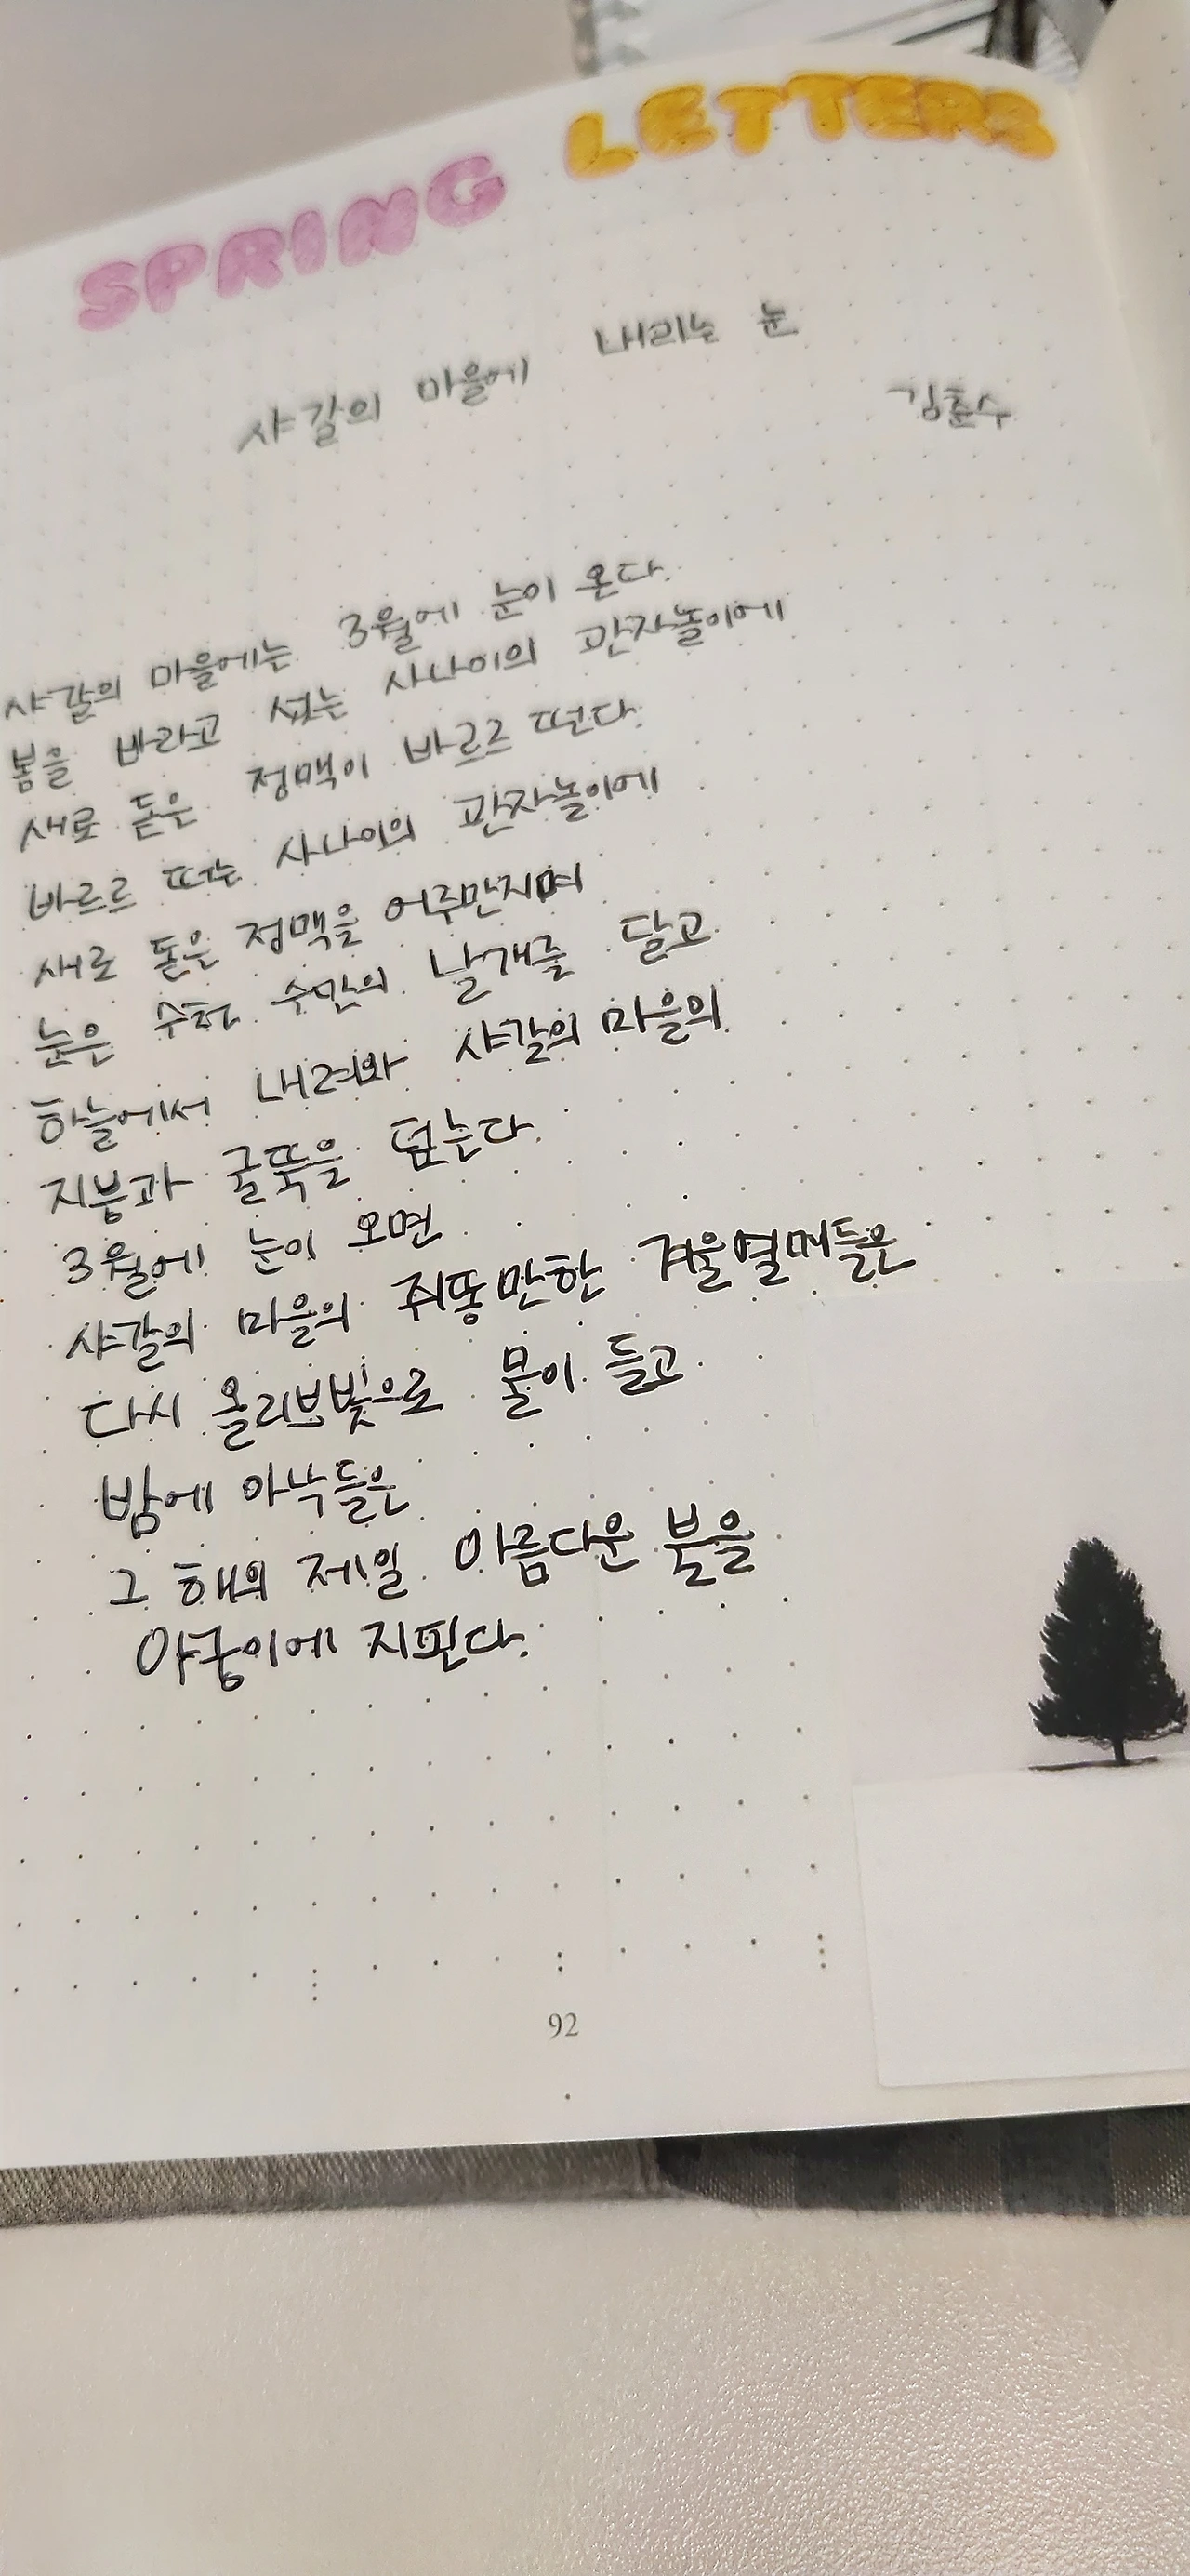 SPRING LETTERS
샤갈의 마을에 내리는 눈
김춘수
샤갈의 마을에는 3월에 눈이 온다.
봄을 바라고 섰는 사나이의 관자놀이에
새로 돋은 정맥이 바르르 떤다.
바르르 떠는 사나이의 관자놀이에
새로 돋은 정맥을 어루만지며
눈은 수천 수만의 날개를 달고
하늘에서 내려와 샤갈의 마을의
지붕과 굴뚝을 덮는다.
3월에 눈이 오면
샤갈의 마을의 쥐똥만한 겨울열매들은
다시 올리브빛으로 물이 들고
밤에 아낙들은
그 해의 제일 아름다운 불을
아궁이에 지핀다.
92